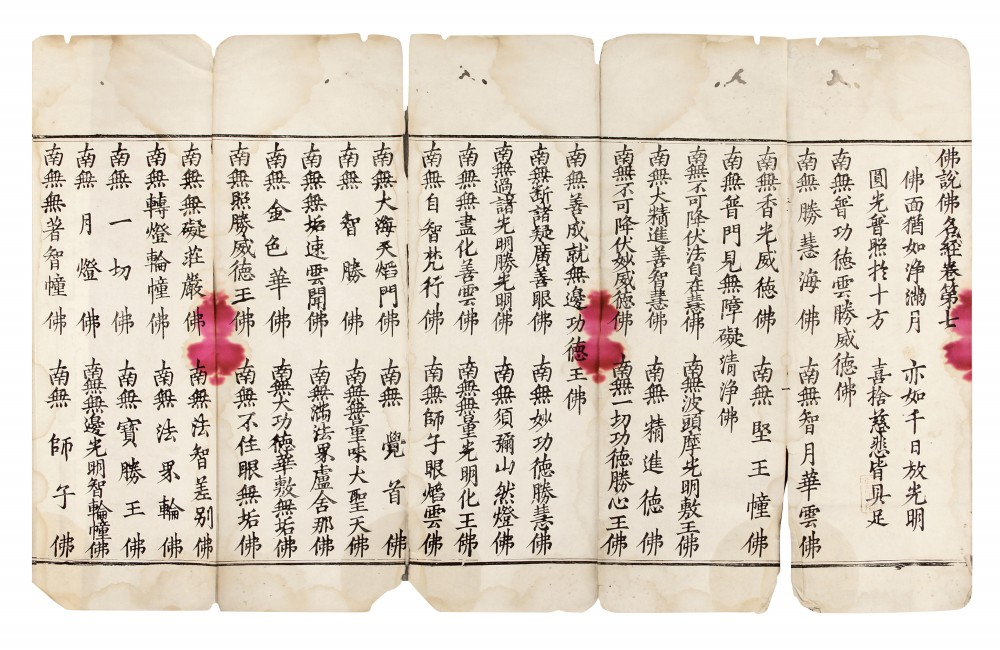 佛說佛名経卷第七
佛面猶如淨滿月　亦如千日放光明
圓光普照扵十方　喜捨慈悲皆具足
南無普功德雲勝威德佛
南無勝慧海佛　南無智月華雲佛
南無香光威德佛　南無堅王幢佛
南無普門見無障礙清淨佛
南無不可降伏法自在慧佛　南無波頭摩光明敷王佛
南無大精進善智慧佛　南無精進德佛
南無不可降伏妙威德佛　南無一切功德勝心王佛
南無善成就無邊功德王佛
南無断諸疑廣善眼佛　南無妙功德勝慧佛
南無過諸光明勝光明佛　南無須彌山然燈佛
南無無盡化善雲佛　南無無量光明化王佛
南無自智梵行佛　南無師子眼熖雲佛
南無大海天熖門佛　南無覺首佛
南無智勝佛　南無無量味大聖天佛
南無無垢速雲聞佛　南無滿法界盧舍那佛
南無金色華佛　南無大功德華敷無垢佛
南無照勝威德王佛　南無不住眼無垢佛
南無無礙莊嚴佛　南無法智差别佛
南無轉燈輪幢佛　南無法界輪佛
南無一切佛　南無寶勝王佛
南無月燈佛　南無無邊光明智輪幢佛
南無無著智幢佛　南無師子佛